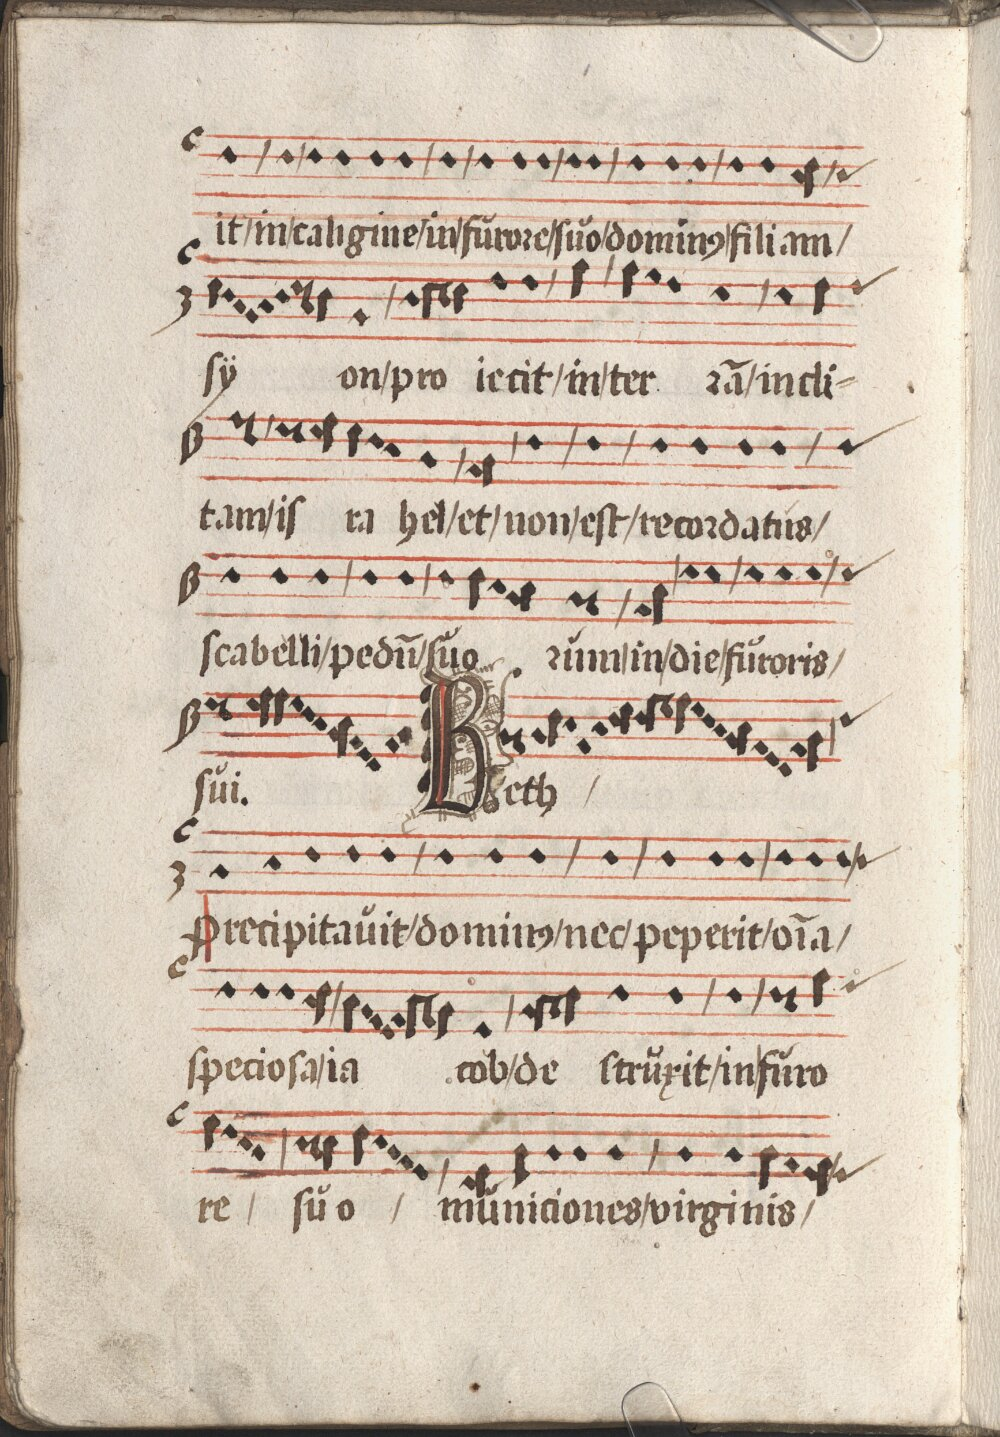 it/in/caligine/in/furore/suo/dominꝰ/filiam/
sÿ on/pro iecit/in/ter rā/incli=
tam/is ra hel/et/non/est/recordatus/
scabelli/pedū/suo rum/in/die/furoris/
sui. Beth /
Precipitauit/dominꝰ/nec/peperit/oīa/
speciosa/ia cob/de struxit/in/furo
re / suo / municiones/virginis/